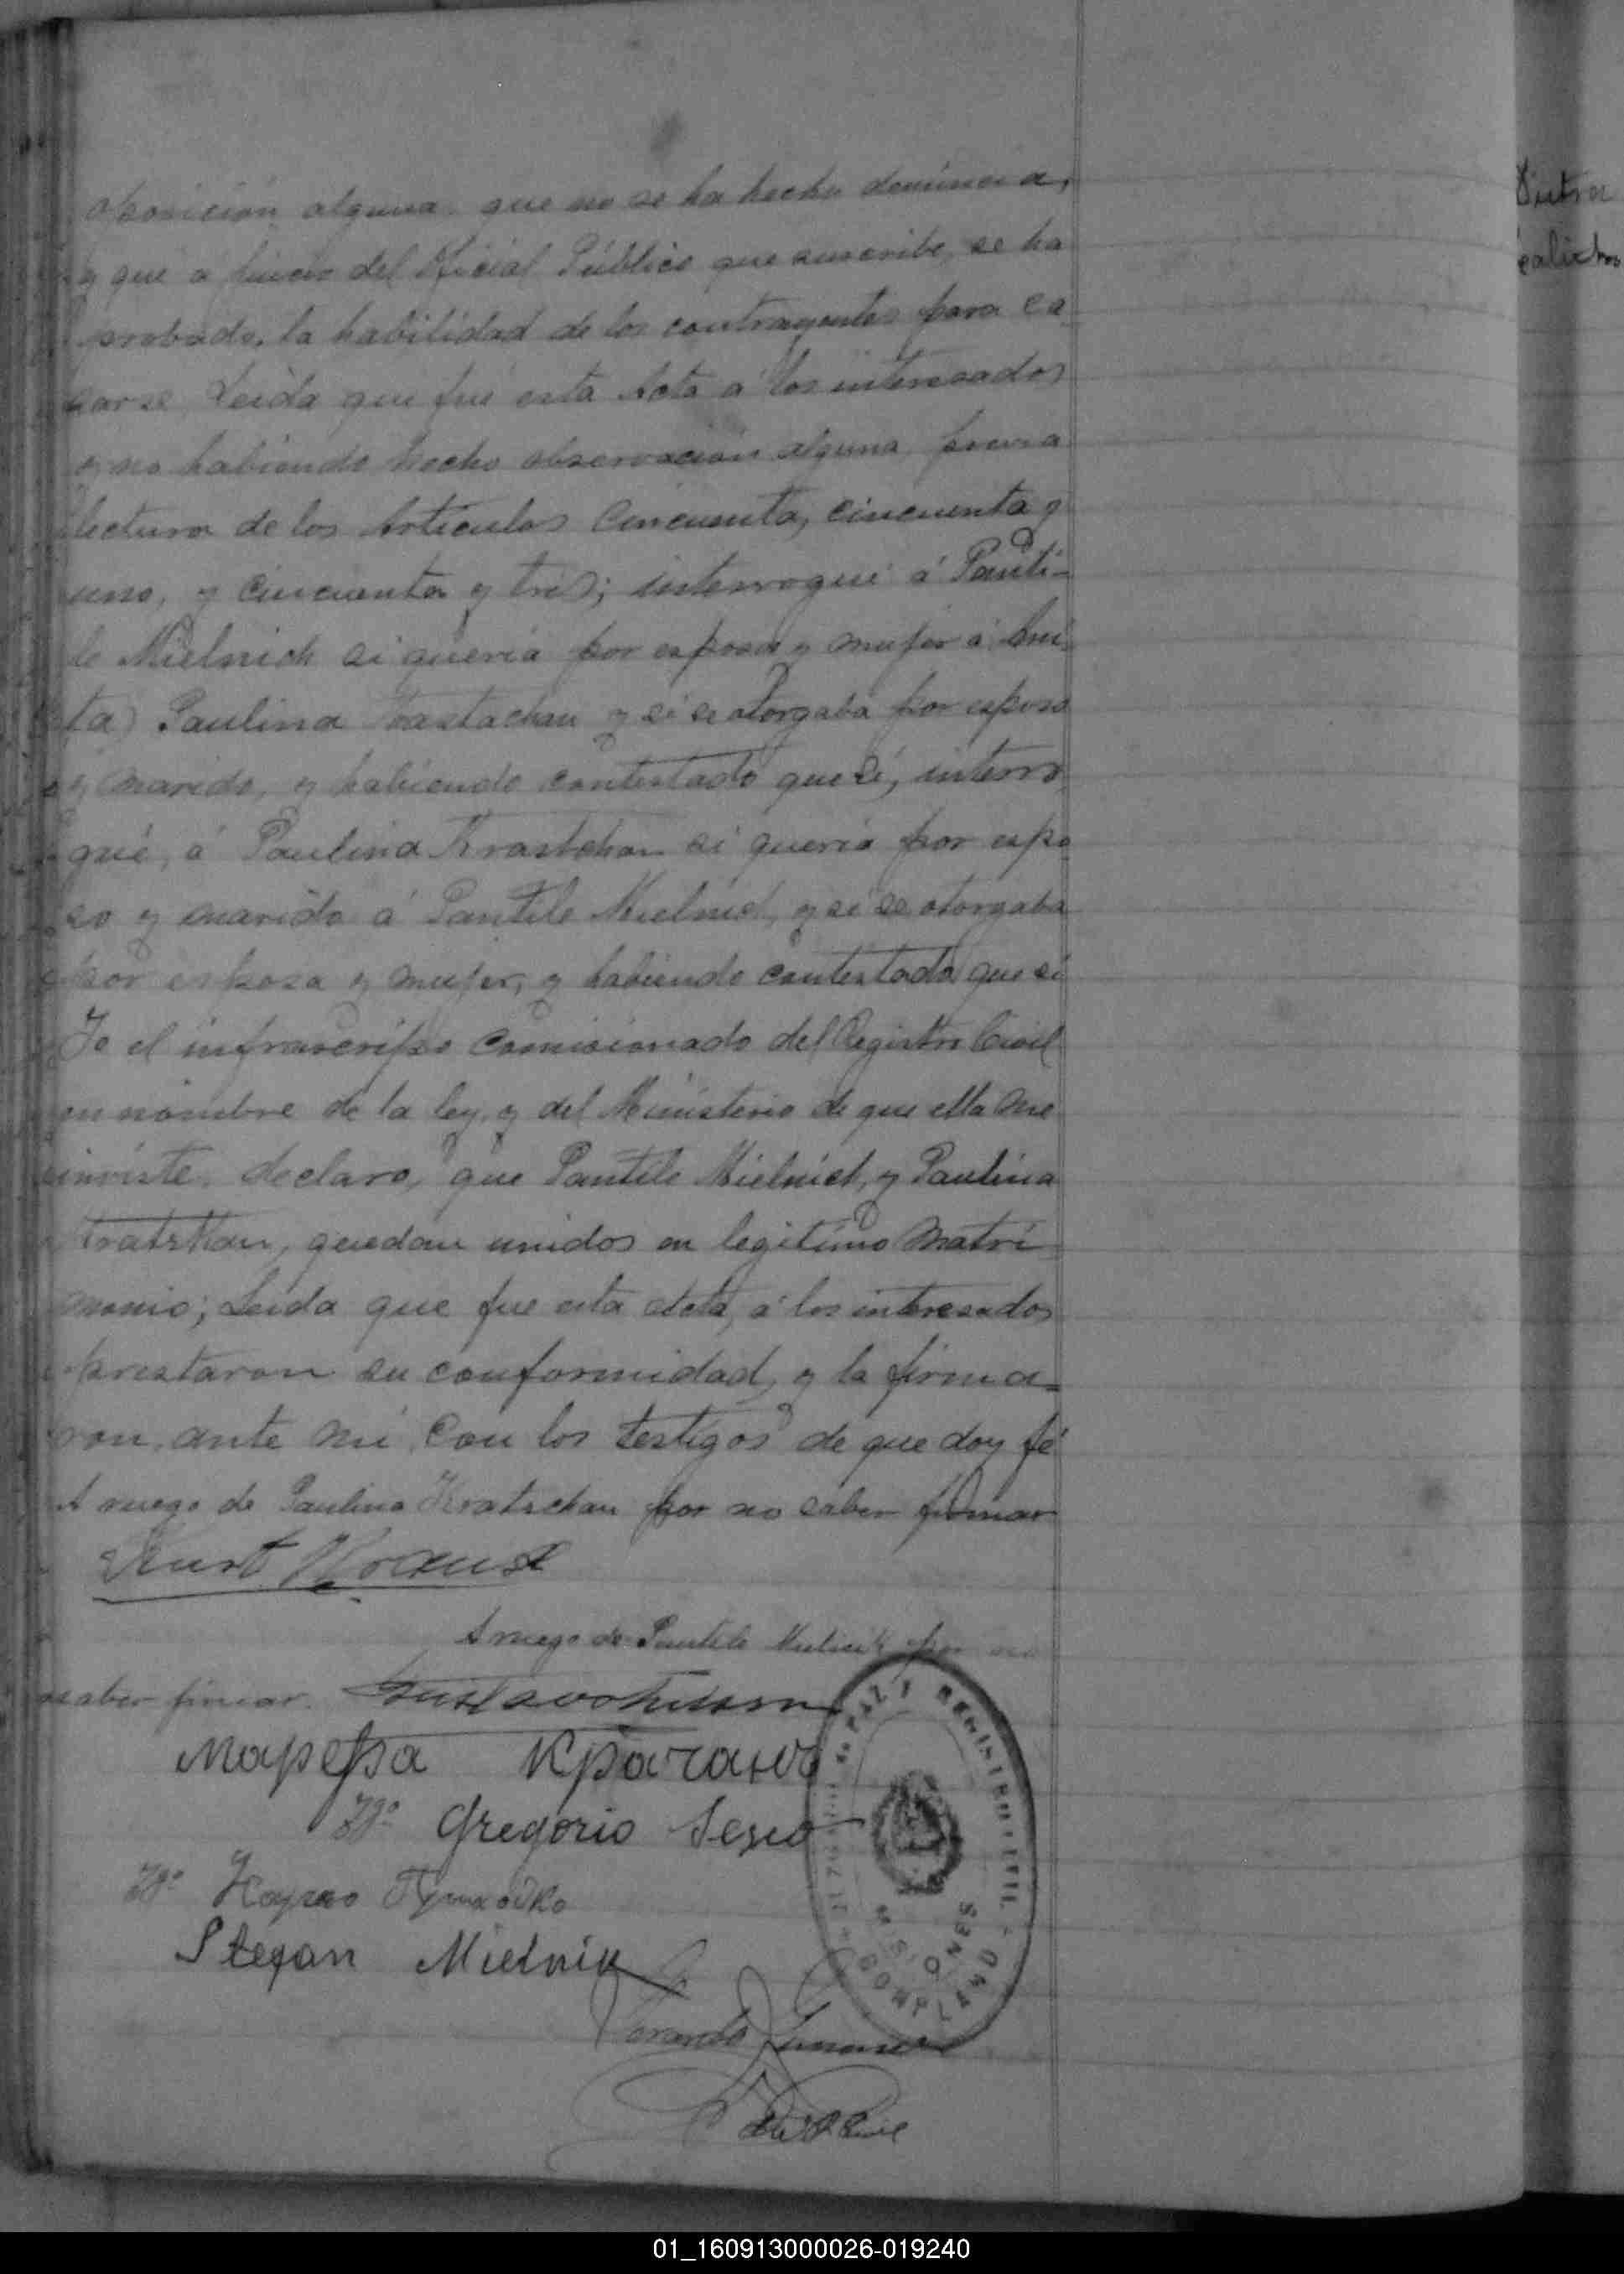 oposición alguna que no se ha hecho denúncia,
y que a juicio del Oficial Público que suscribe, se ha
probado, la habilidad de los contrayentes para ca
sarse, Leida que fué esta Acta á los interesados
y no habiendo hecho observación alguna, previa
lectura de los Artículos Cincuenta, cincuenta y
uno, y Cincuenta y tres; interrogué á Panti-
le Mielnich si quería por esposa y mujer á
Paulina y si se otorgaba por esposo
y marido, y habiendo contestado que sí, interro
gué, á Paulina Krastchan si quería por espo
so y marido á Pantile Mielnich, y si se otorgaba
por esposa y mujer, y habiendo contestado que sí
Yo el infrascripto Comisionado del Registro Civil
en nombre de la ley, y del Ministerio de que ella me
inviste, declaro, que Pantile Mielnich, y Paulina
Kratskan, quedan unidos en legítimo Matri
monio; Leida que fue esta acta, á los interesados
prestaron su conformidad, y la firma=
ron, ante mi, Con los testigos de que doy fé
A ruego de Paulina Kratschan por no saber firmar
Kurt Kraus
A ruego de Pantile Mielnik por no
saber firmar.
Кратчанъ
Tgo Gregorio
Tgo
Stefan Mielnik
DE PAZ Y REGISTRO CIVIL
MISIONES
01_160913000026-019240